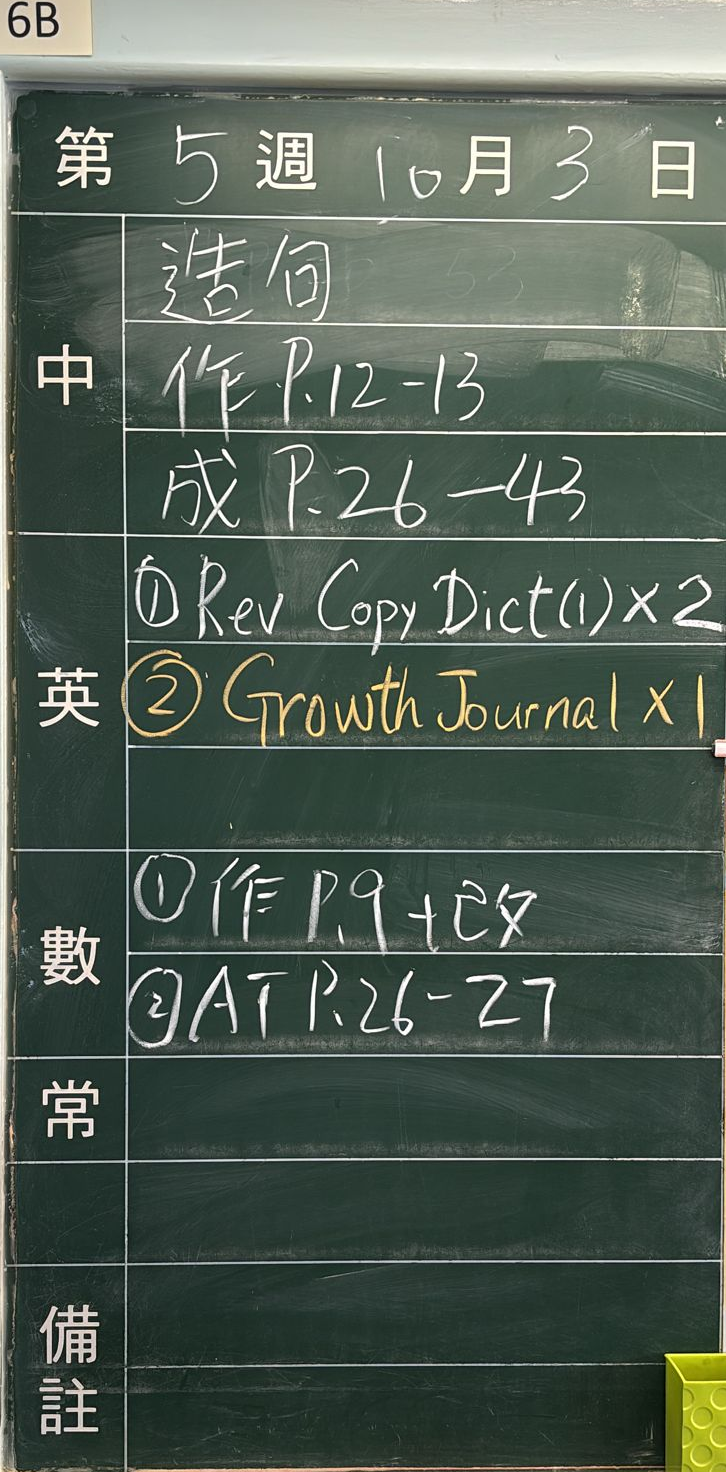 6B
第 5 週 10 月 3 日
中
造句
作 P.12-13
成 P.26-43
英
① Rev Copy Dict(1) x 2
② Growth Journal x 1
數
① 作 P.9 + 改
② AT P.26-27
常
備註